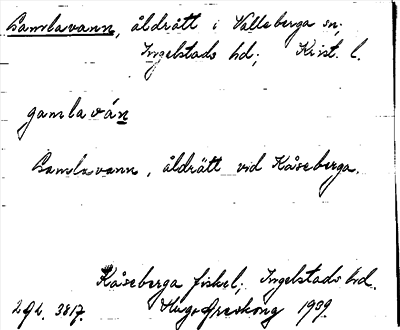 Gamlavann, åldrätt i Valleberga sn;
Ingelstads hd; Krist. l.
gamlaván
Gamlavann, åldrätt vid Kåseberga.
Kåseberga fiskel; Ingelstads hd.
3817. Hugo Areskoug 1909.